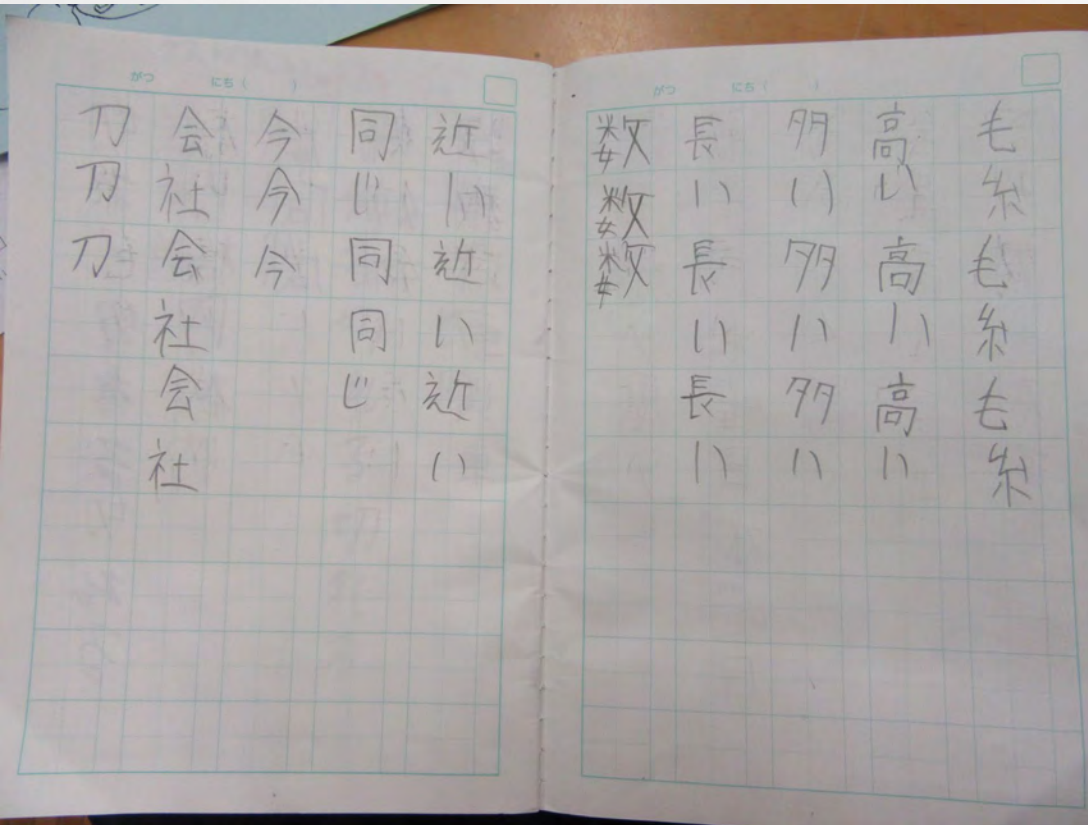 がつ にち( )
毛糸毛糸毛糸
高い高い高い
多い多い多い
長い長い長い
数数数
がつ にち( )
近い近い近い
同じ同同じ
今今今
会社会社会社
刀刀刀